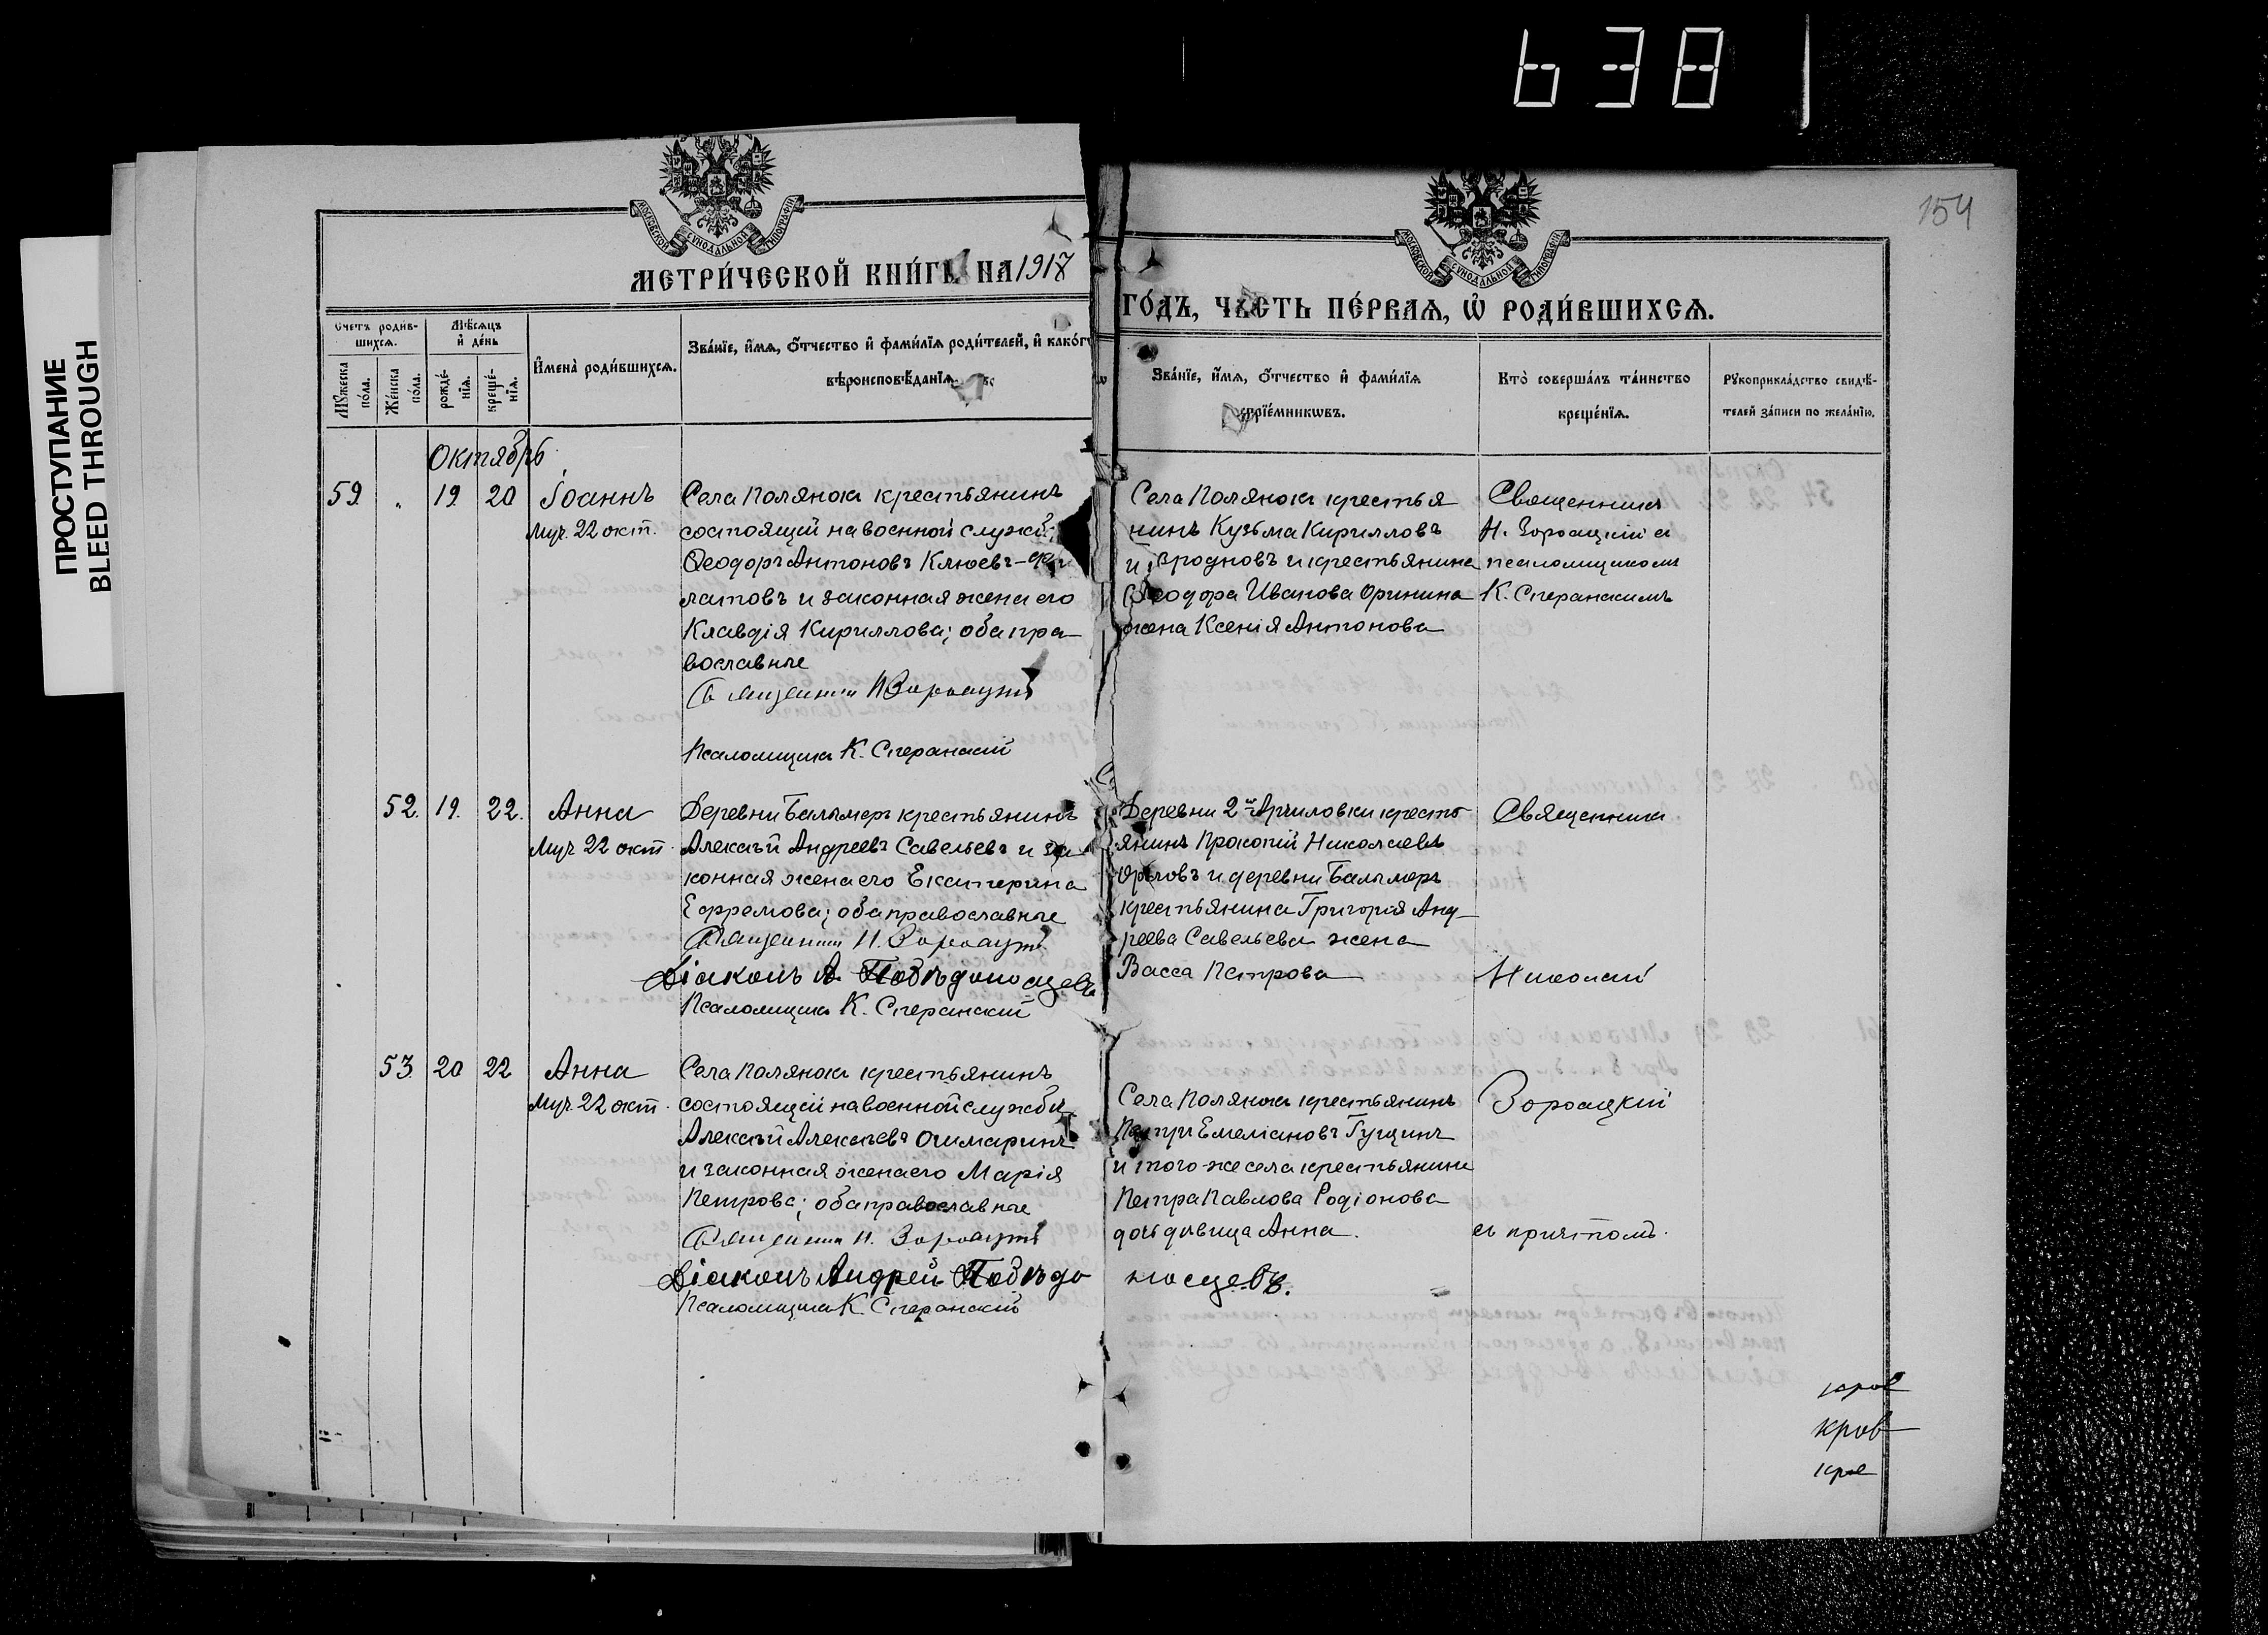 638
ПРОСТУПАНИЕ
BLEED THROUGH
154
МОСКОВСКОЙ СѴНОДАЛЬНОЙ ТИПОГРАФІИ
МОСКОВСКОЙ СѴНОДАЛЬНОЙ ТИПОГРАФІИ
МЕТРИ́ЧЕСКОЙ КНИ́ГИ НА 1917
ГО́ДЪ, ЧАСТЬ ПЕ́РВАѦ, Ѡ РОДИ́ВШИХСѦ.
Счетъ роди́в-
шихсѧ.
Мѣ́сѧцъ
и҆ де́нь
Мꙋ́жеска
по́ла.
Же́нска
по́ла.
рожде́-
нїѧ.
креще́-
нїѧ.
И҆мена̀ роди́вшихсѧ.
Зва́нїе, и҆́мѧ, ѻ҆́тчество и҆ фами́лїѧ роди́телей, и҆ како́г
вѣроисповѣ́данїѧ
Зва́нїе, и҆́мѧ, ѻ҆́тчество и҆ фами́лїѧ
воспрїе́мникѡвъ.
Кто̀ соверша́лъ та́инство
креще́нїѧ.
Рꙋкоприкла́дство свидѣ́-
телей за́писи по жела́нїю.
Октябрь
59 " 19 20 Іоаннъ
Муч. 22 окт.
Села Полянокъ крестьянинъ
состоящій на военной службѣ
Ѳеодоръ Антоновъ Клюевъ-Фи
латовъ и законная жена его
Клавдія Кириллова; оба пра
вославные
Священникъ Н Зороацкій
Псаломщикъ К. Сперанскій
Села Полянокъ крестья
нинъ Кузьма Кирилловъ
и крестьянина
Ѳеодора Иванова
жена Ксенія Антонова
Священникъ
Н. Зороацкій съ
псаломщикомъ
К. Сперанскимъ
52. 19. 22. Анна
Муч 22 окт.
Деревни Балымеръ крестьянинъ
Алексѣй Андреевъ Савельевъ и за
конная жена его Екатерина
Ефремова; оба православные
Священникъ Н. Зороацкій
Діаконъ А. Побѣдоносцевъ
Псаломщикъ К. Сперанскій
Деревни 2й кресть
янинъ Прокопій Николаевъ
Орловъ и деревни Балымеръ
крестьянина Григорія Анд
реева Савельева жена
Васса Петрова
Священникъ
Николай
53 20 22 Анна
Муч. 22 окт.
Села Полянокъ крестьянинъ
состоящій на военной службѣ
Алексѣй Алексѣевъ Ошмаринъ
и законная жена его Марія
Петрова; оба православные
Священникъ Н. Зороацкій
Діаконъ Андрей Побѣдо
носцевъ.
Псаломщикъ К. Сперанскій
Села Полянокъ крестьянинъ
Петръ Емеліановъ Гущинъ
и того-же села крестьянина
Петра Павлова Родіонова
дочь дѣвица Анна.
Зороацкій
съ причтомъ.
кров